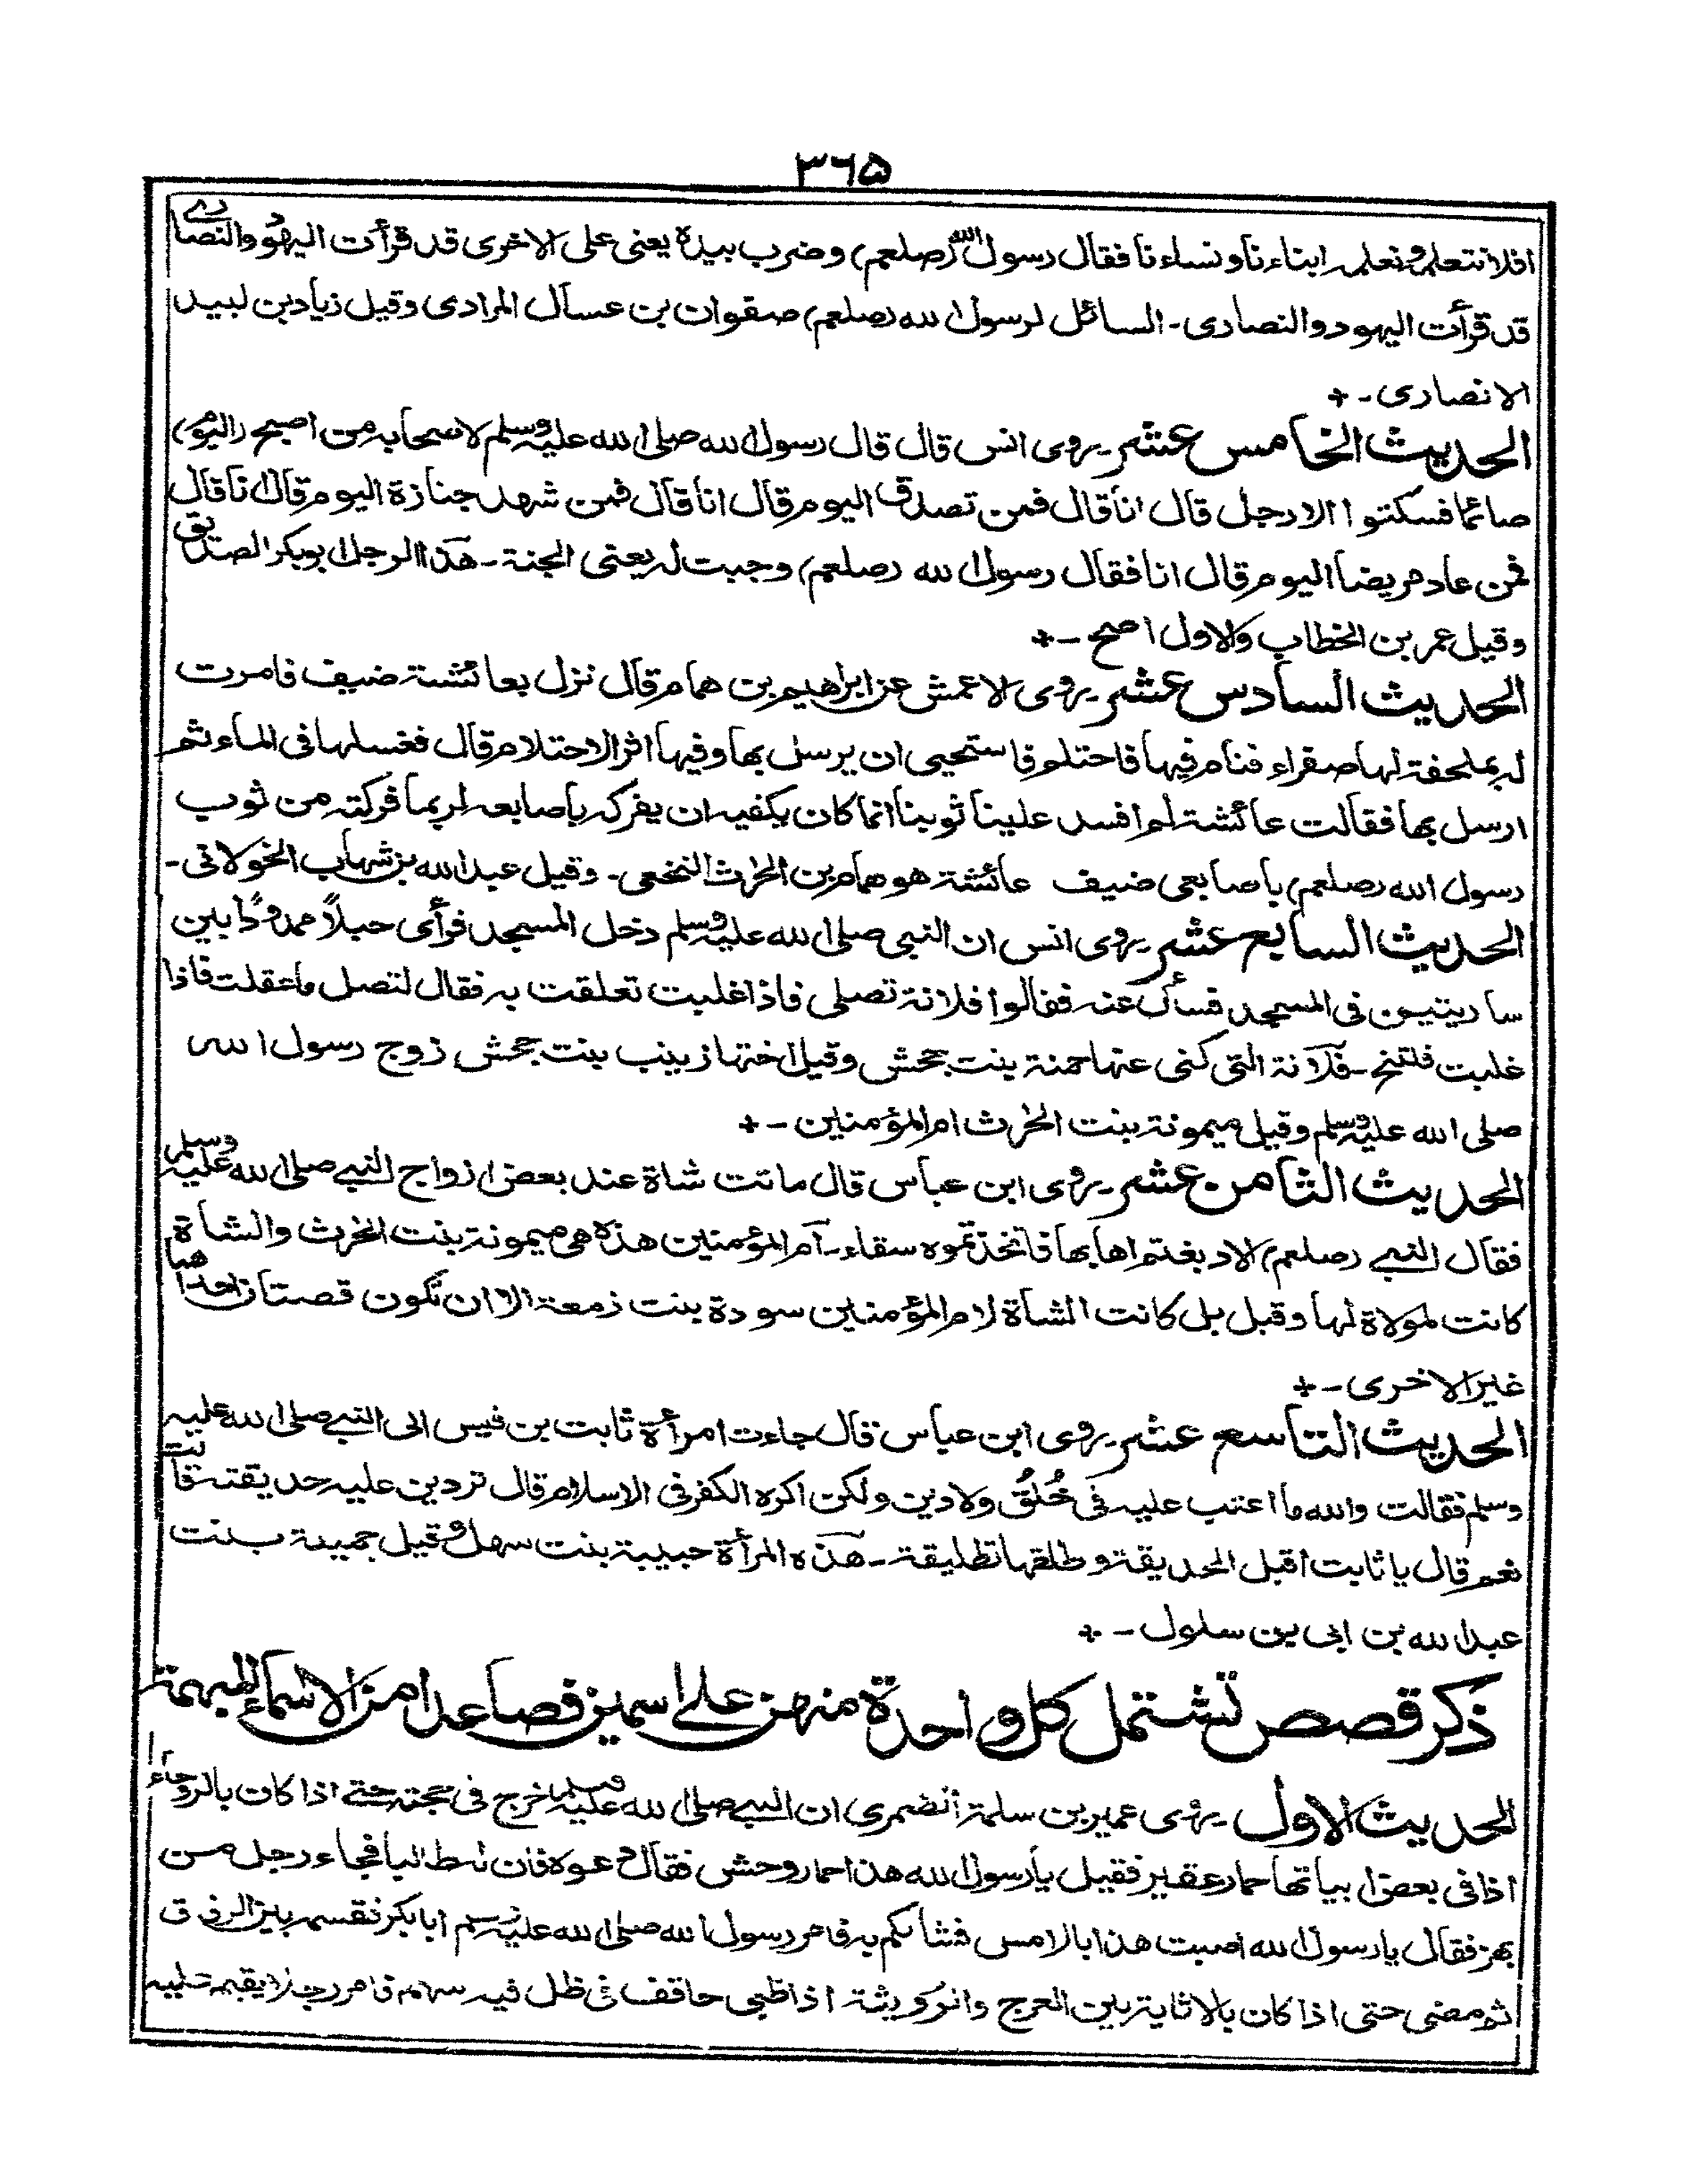 ٣٦٥
افلا نتعلم ونعلمه ابناءنا ونساءنا فقال رسول الله (صلعم) وضرب بيده يعنى على الاخرى قد قرأت اليهود والنصارے
قد قرأت اليهود والنصارى۔ السائل لرسول الله (صلعم) صفوان بن عسال المرادى وقيل زياد بن لبيد
الانصارى۔ +
الحديث الخامس عشر۔ روى انس قال قال رسول الله صلى الله عليه وسلم لاصحابه من اصبح (اليوم)
صائما فسكتوا الا رجل قال انا قال فمن تصدق اليوم قال انا قال فمن شهد جنازة اليوم قال انا قال
فمن عاد مريضا اليوم قال انا فقال رسول الله (صلعم) وجبت له يعنى الجنة۔ هذا الرجل ابوبكر الصديق
وقيل عمر بن الخطاب والاول اصح۔ +
الحديث السادس عشر۔ روى الاعمش عن ابراهيم بن همام قال نزل بعائشة ضيف فامرت
له بملحفة لها صفراء فنام فيها فاحتلم فاستحيى ان يرسل بها وفيها اثر الاحتلام قال فغسلها فى الماء ثم
ارسل بها فقالت عائشة لم افسد علينا ثوبنا انما كان يكفيه ان يفركه باصابعه لربما فركته من ثوب
رسول الله (صلعم) باصابعى ضيف عائشة هو همام بن الحرث النخعى۔ وقيل عبد الله بن شهاب الخولانى۔
الحديث السابع عشر۔ روى انس ان النبى صلى الله عليه وسلم دخل المسجد فرأى حبلاً ممدودًا بين
ساريتين فى المسجد فسأل عنه فقالوا فلانة تصلى فاذا غلبت تعلقت به فقال لتصل ما عقلت فاذا
غلبت فلتنح۔ فلانة التى كنى عنها حمنة بنت جحش وقيل اختها زينب بنت جحش زوج رسول الله
صلى الله عليه وسلم وقيل ميمونة بنت الحرث ام المؤمنين۔ +
الحديث الثامن عشر۔ روى ابن عباس قال ماتت شاة عند بعض ازواج النبے صلى الله عليه وسلم
فقال النبے (صلعم) الا دبغتم اهابها فاتخذتموه سقاء۔ ام المؤمنين هذه هى ميمونة بنت الحرث والشاة
كانت لمولاة لها وقبل بل كانت الشاة لام المؤمنين سودة بنت زمعة الا ان تكون قصتان احداهما
غير الاخرى۔ +
الحديث التاسع عشر۔ روى ابن عباس قال جاءت امرأة ثابت بن قيس الى النبے صلى الله عليه
وسلم فقالت والله ما اعتب عليه فى خُلُق ولا دين ولكن اكره الكفر فى الاسلام قال تردين عليه حديقته قالت
نعم قال يا ثابت اقبل الحديقة وطلقها تطليقة۔ هذه المرأة حبيبة بنت سهل وقيل جميلة بنت
عبد الله بن ابى بن سلول۔ +
ذكر قصص تشتمل كل واحدة منهن على اسمين فصاعدا من الاسماء المبهمة
الحديث الاول۔ روى عمير بن سلمة الضمرى ان النبے صلى الله عليه وسلم خرج فى حجته حتے اذا كان بالروحاء
اذا فى بعض ابياتها حمار عقير فقيل يا رسول الله هذا حمار وحش فقال دعوه فان فجاء رجل من
بهز فقال يا رسول الله اصبت هذا بالامس فشأنكم به فامر رسول الله صلى الله عليه وسلم ابا بكر فقسمه بين الرفاق
ثم مضى حتى اذا كان بالاثاية بين العرج والرويثة اذا ظبى حاقف فى ظل فيه سهم فامر رجلا يقيم عليه